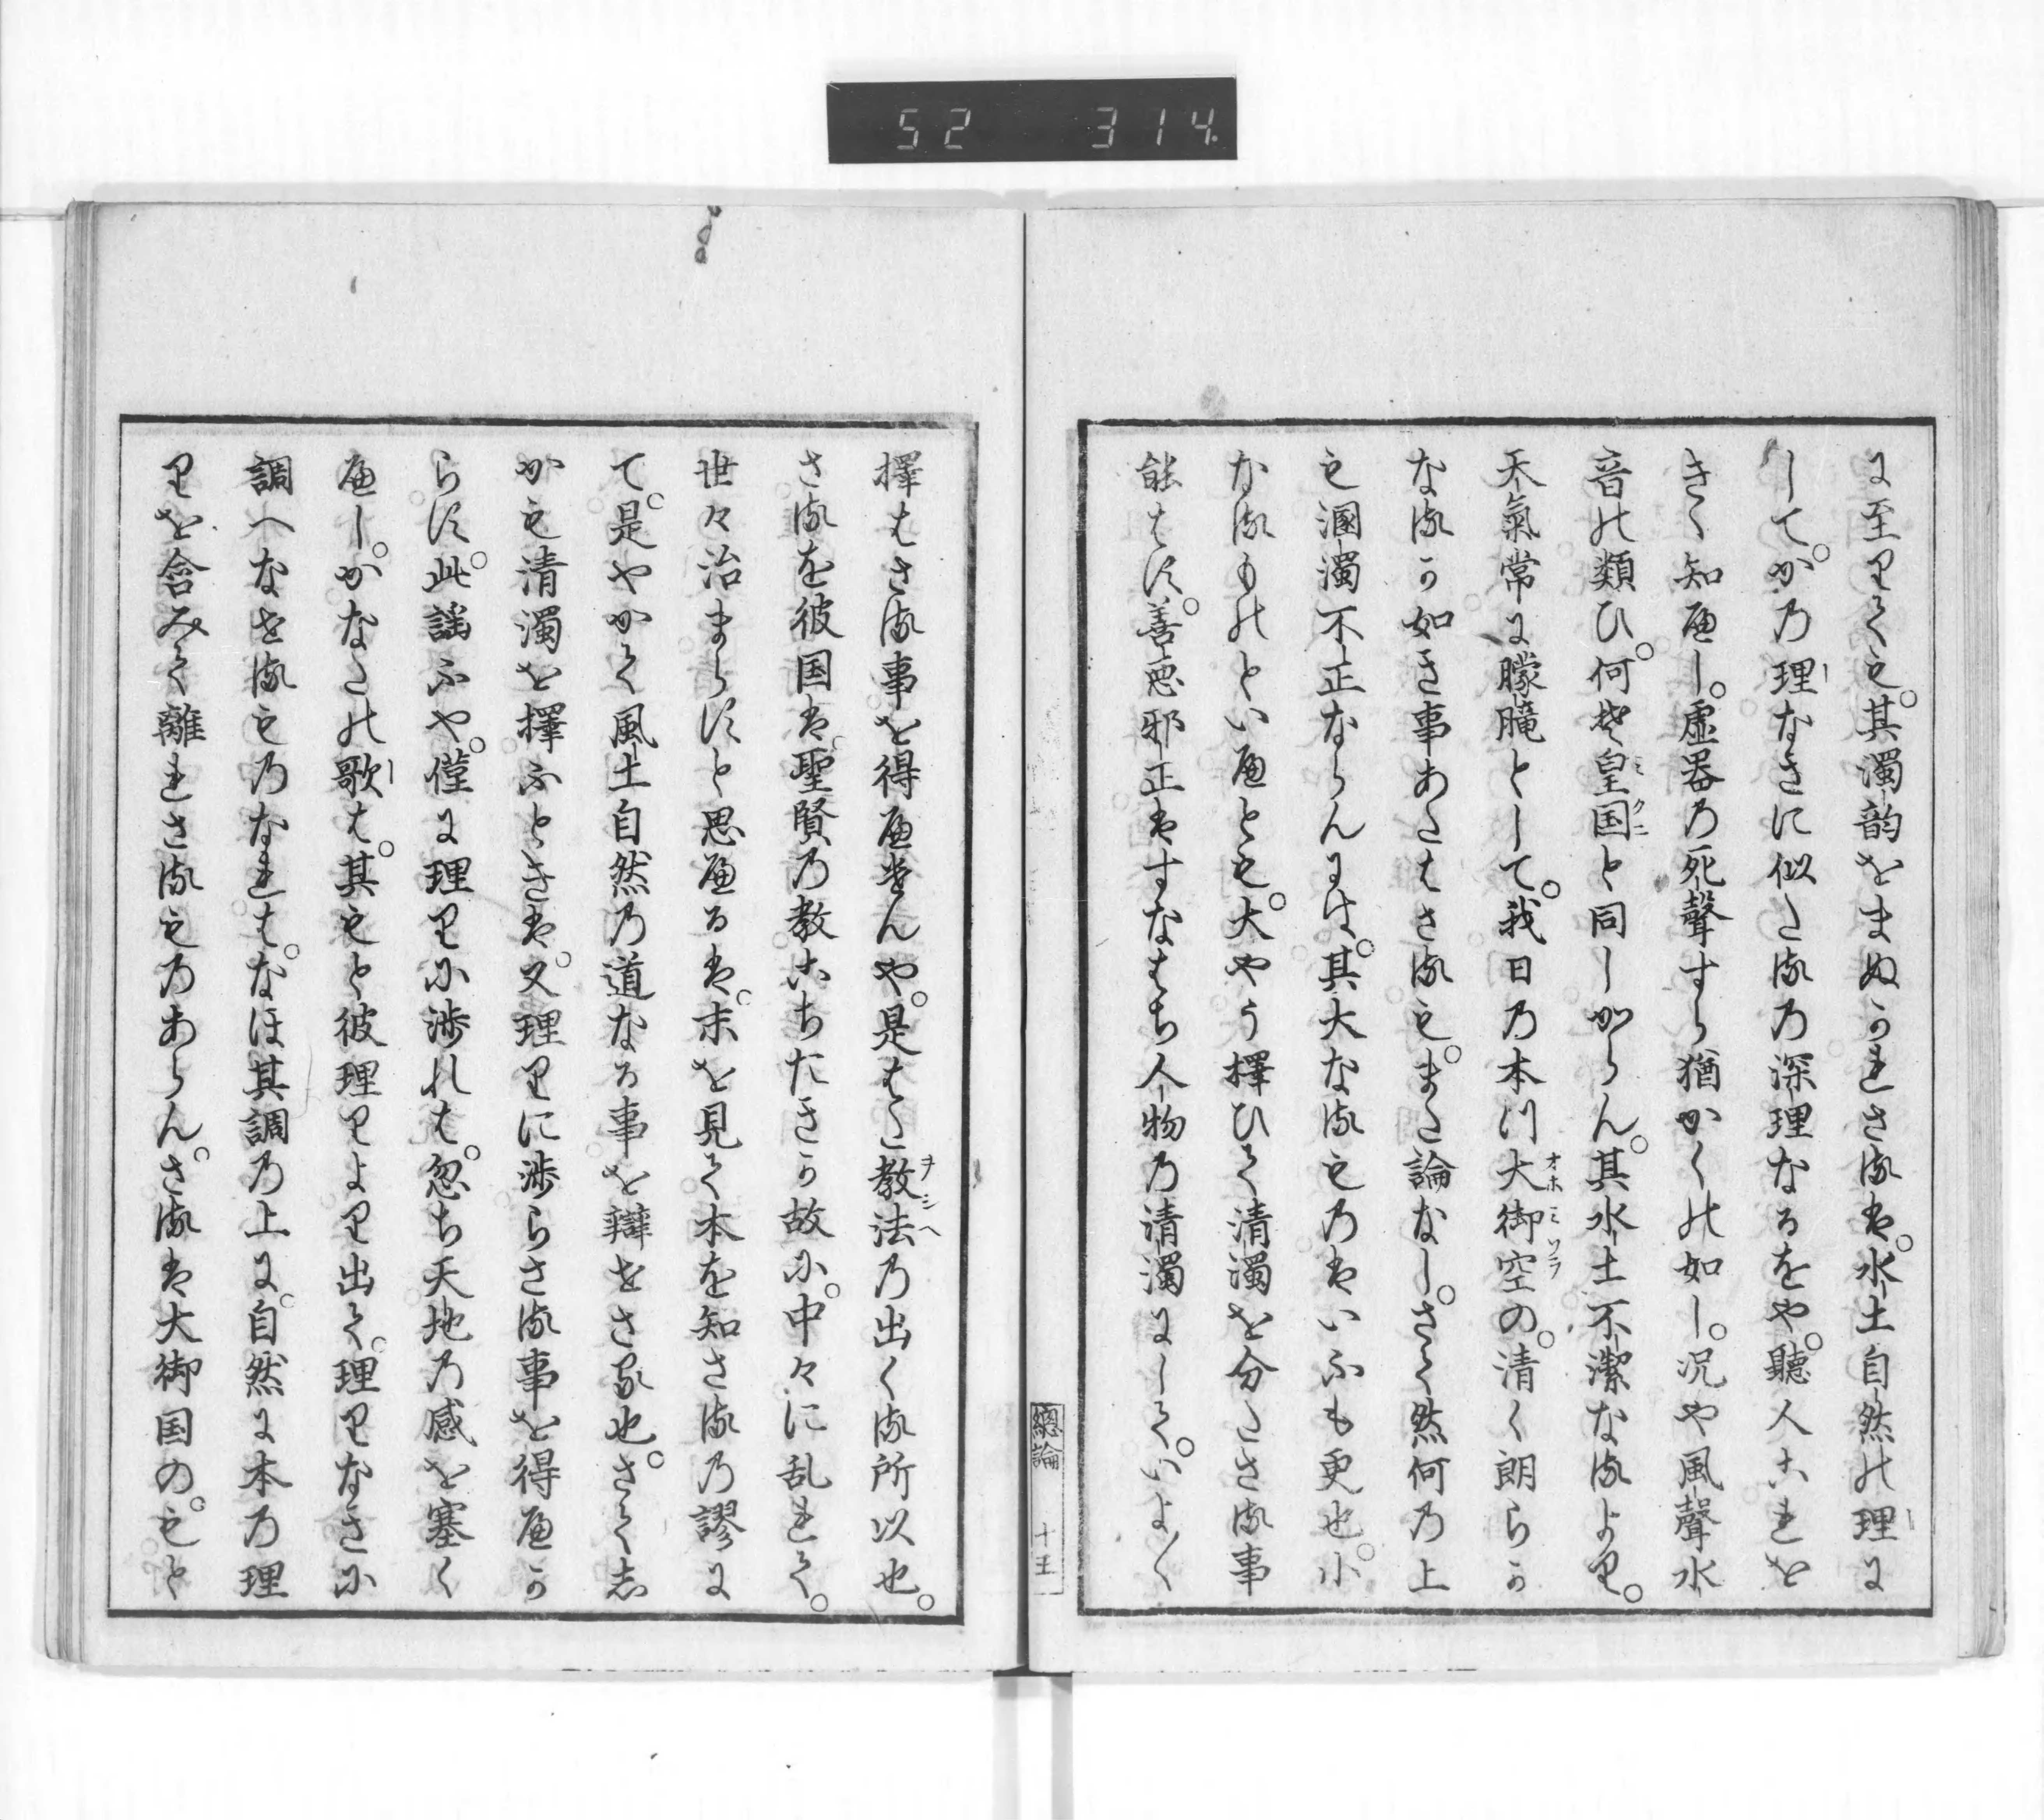 52 314.
に至りても。其濁韵をまぬかれさるは。水土自然の理に
して。かの理なきに似たるの深理なるをや。聽人これを
きく知へし。虚器の死聲すら猶かくの如し。况や風聲水
音の類ひ。何そ皇国と同しからん。其水土不潔なるより。
ミクニ
天氣常に朦朧として。我日の本つ大御空の。清く朗らか
オホミソラ
なるか如き事あたはさるも。また論なし。さて然何の上
も溷濁不正ならんには。其大なるものはいふも更也。小
なるものといへとも。大やう擇ひて清濁を分たさる事
能はす。善悪邪正はすなはち人物の清濁にして。いよ〱
總論 十五
擇はさる事を得へけんや。是はた教法の出くる所以也。
ヲシヘ
さるを彼国は聖賢の教こちたきか故に。中々に乱れて。
世々治まらすと思へるは。末を見て本を知さるの謬に
て。是やかて風土自然の道なる事を辯せさる也。さてし
かも清濁を擇ふときは。又理りに渉らさる事を得へか
らす。此謡ふや。僅に理りに渉れは。忽ち天地の感を塞く
へし。かなたの歌は。其もと彼理りより出て。理りなきに
調へなせるものなれは。なほ其調の上に。自然に本の理
りを含みて離れさるものあらん。さるは大御国の。もと